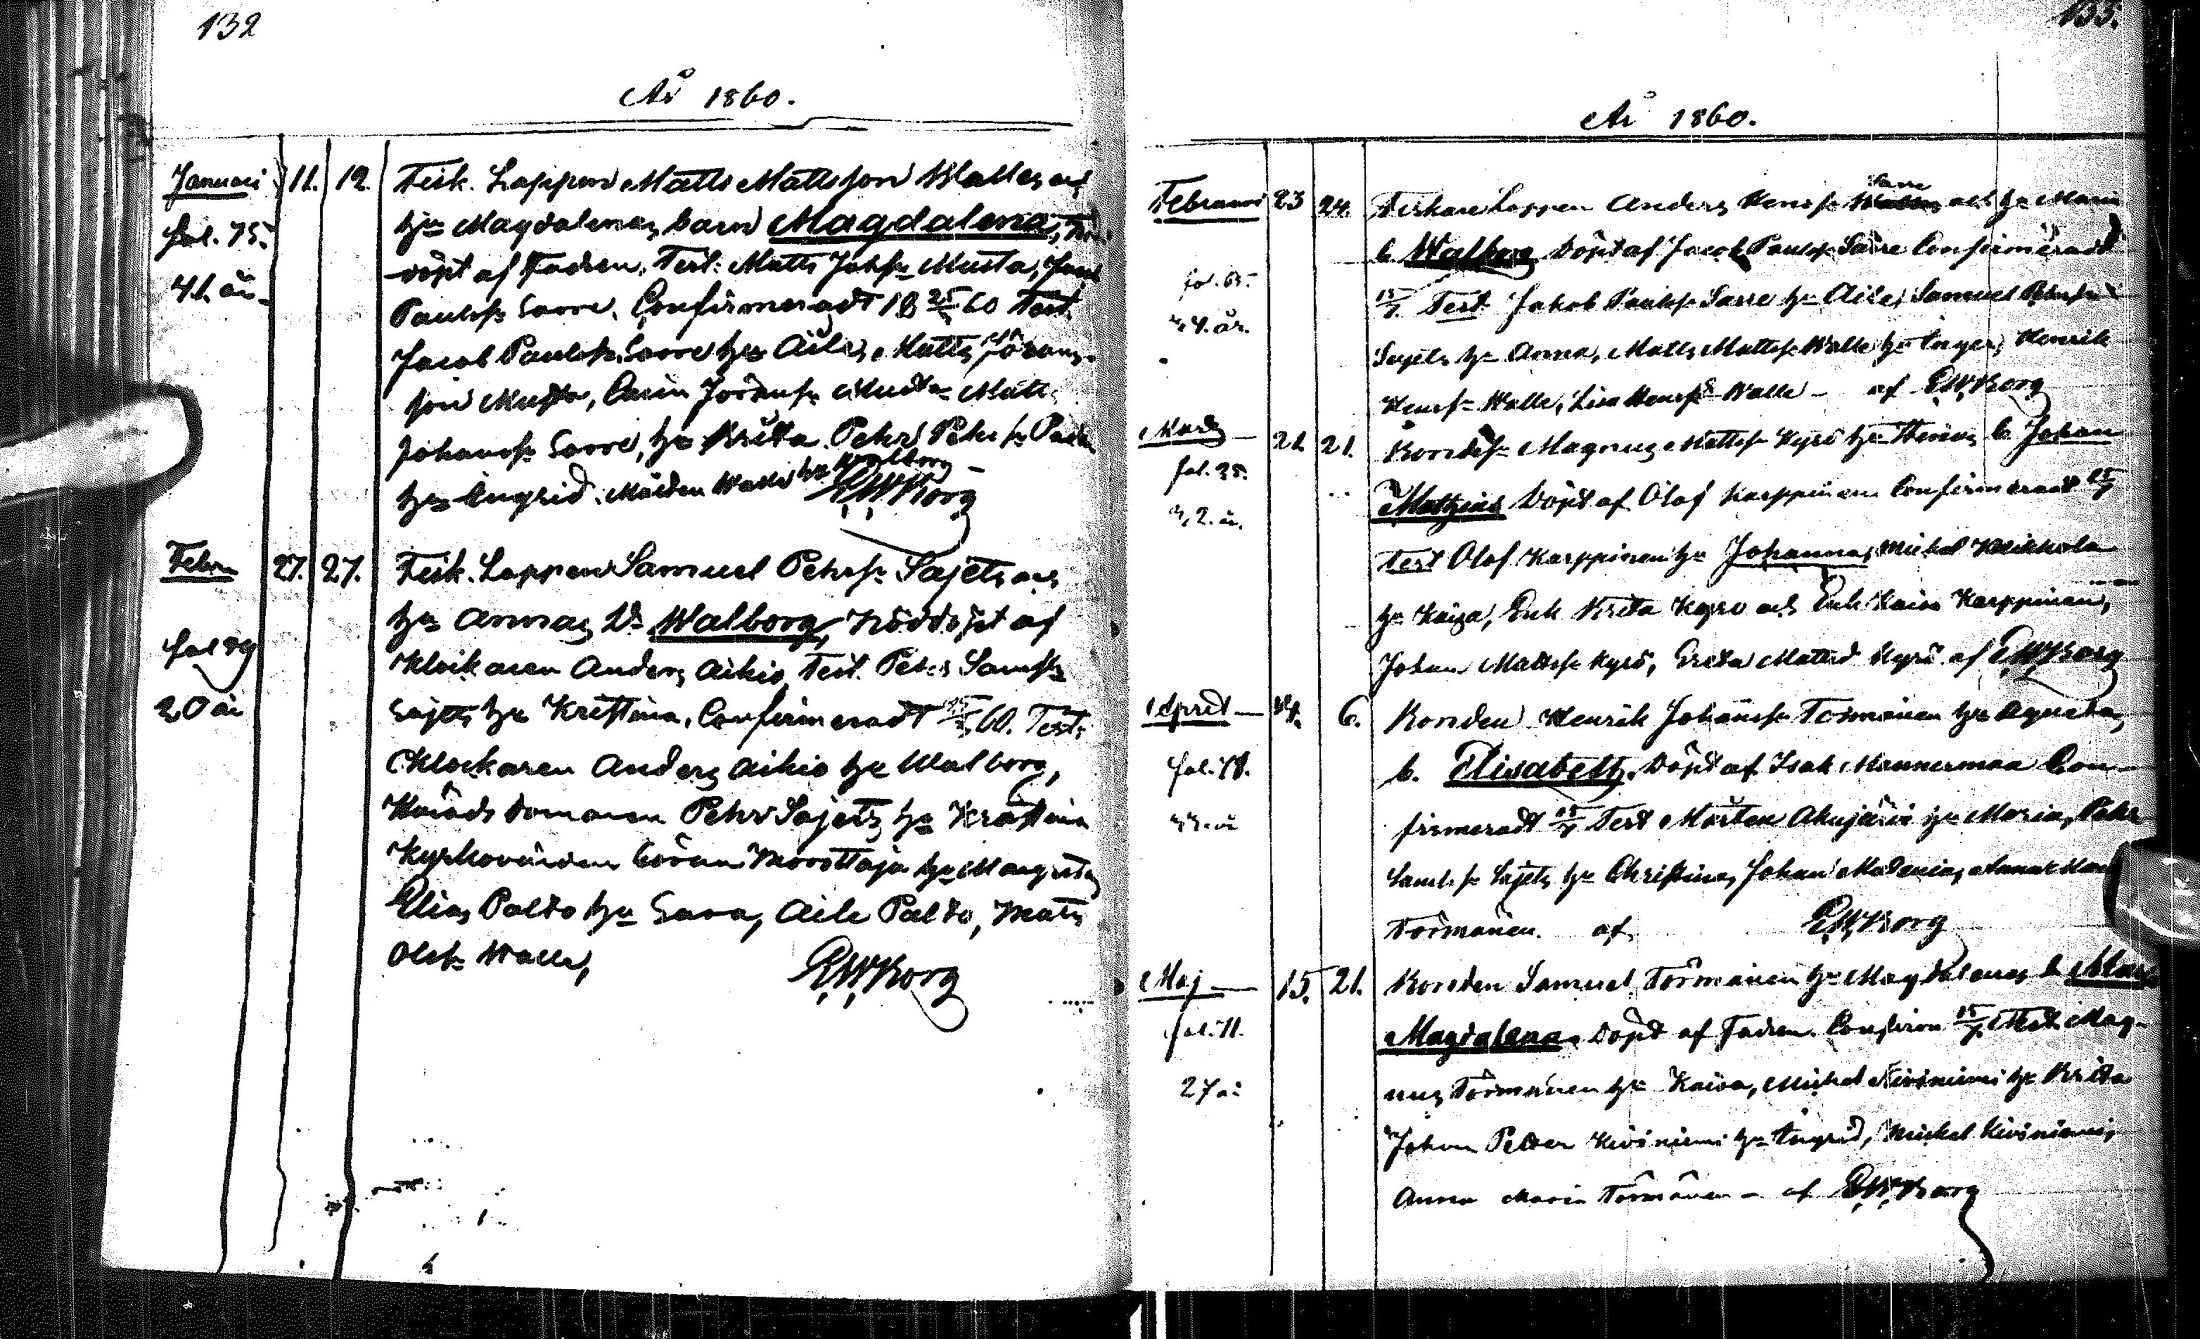 132
År 1860.
Januari 11. 12. Fisk. Lappen Matts Mattsson Walles och
fol. 75. hu Magdalenas barn Magdalena,
döpt af Fadren. Test: Matts Johss Musta,
41 år. Paulss Sarre. Confirmeradt 18 25 60 Test.
Jacob Paulss. Sarre hu Aile, Matts Jörans-
son Musta, Carin Jöranss Musta Matts
Johanss. Sarre, hu Brita Pehr Pehrss
hu Ingrid. Mårten Walle hu Walborg
EWBorg
Febr 27. 27. Fisk. Lappen Samuel Pehrss. Sajets och
hu Annas Dr Walborg, Nöddöpt af
fol 89 Klockaren Anders Aikio, Test. Pehr Samss.
20 år Sajets hu Kristina. Confirmeradt 60. Test:
Klockaren Anders Aikio hu Walborg,
Härads domaren Pehr Sajets hu Kristina
Kyrkovärden Göran Morottaja hu Margreta
Elias Palto hu Sara, Aile Palto, Matts
Olss. Walle,
EWBorg
133.
År 1860.
Februari 23 24. Fiskare Lappen Anders Henrss. Sarre och hu Marias
b. Walborg Döpt af Jacob Paulss. Sarre Confirmeradt
fol. 65. Test Jakob Paulss Sarre hu Aile, Samuel Pehrss
44. år. Sajets hu Anna, Matts Mattss. Walle hu Inger, Henrik
Henrss. Walle, Lisa Walle - af EWBorg
Mars 21. 21. Magnus Mattss Kyrö hu b. Johan
fol. 35. Mathias Döpt af Olof Karppinen Confirmeradt
42. år. Test Olof Karppinen hu Johanna, Mickel
hu Kaisa, Enk Brita Kyrö och Enk Kaisa Karppinen,
Johan Mattss. Kyrö, Greta Kyrö af EWBorg
April 4. 6. Bonden Henrik Johanss. Törmänen hu Agnetas,
fol. 78. b. Elisabeth, Döpt af Isak Mannermaa Con-
firmeradt Test Mårten Akujärvi hu Maria, Pehr
Samss. Sajets hu Christina, Johan
Törmänen. af EWBorg
Maj 15. 21. Bonden Samuel Törmänen hu Magdalenas b
fol. 11. Magdalena. Döpt af Fadren. Confirm Test. Mag-
27 år nus Törmänen hu Kaisa, Mickel Kiviniemi hu Brita
Johan Petter Kiviniemi hu Ingrid, Mickel Kiviniemi,
Anna Maria Törmänen - af EWBorg